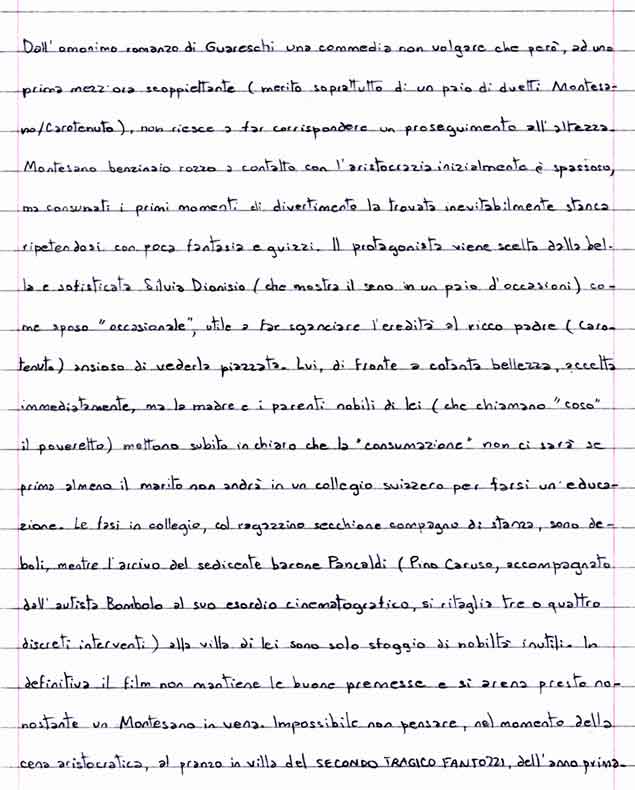 Dall'omonimo romanzo di Guareschi una commedia non volgare che però, ad una
prima mezz'ora scoppiettante (merito soprattutto di un paio di duetti Montesa-
no/Carotenuto), non riesce a far corrispondere un proseguimento all'altezza.
Montesano benzinaio rozzo a contatto con l'aristocrazia inizialmente è spassoso,
ma consumati i primi momenti di divertimento la trovata inevitabilmente stanca
ripetendosi con poca fantasia e guizzi. Il protagonista viene scelto dalla bel-
la e sofisticata Silvia Dionisio (che mostra il seno in un paio d'occasioni) co-
me sposo "occasionale", utile a far sganciare l'eredità al ricco padre (Caro-
tenuto) ansioso di vederla piazzata. Lui, di fronte a cotanta bellezza, accetta
immediatamente, ma la madre e i parenti nobili di lei (che chiamano "coso"
il poveretto) mettono subito in chiaro che la "consumazione" non ci sarà se
prima almeno il marito non andrà in un collegio svizzero per farsi un'educa-
zione. Le fasi in collegio, col ragazzino secchione compagno di stanza, sono de-
boli, mentre l'arrivo del sedicente barone Pancaldi (Pino Caruso, accompagnato
dall'autista Bombolo al suo esordio cinematografico, si ritaglia tre o quattro
discreti interventi) alla villa di lei sono solo sfoggio di nobiltà inutili. In
definitiva il film non mantiene le buone premesse e si arena presto no-
nostante un Montesano in vena. Impossibile non pensare, nel momento della
cena aristocratica, al pranzo in villa del SECONDO TRAGICO FANTOZZI, dell'anno prima.